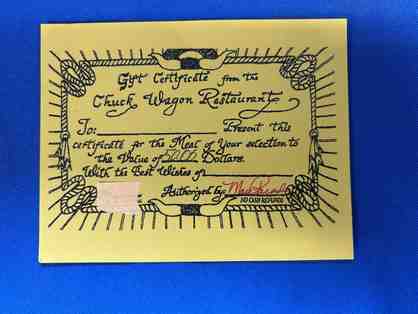 Gift Certificate from the
Chuck Wagon Restaurant
To: Present this
certificate for the Meal of Your selection to
the Value of Dollars.
With the Best Wishes of
Authorized by:
NO CASH REFUNDS